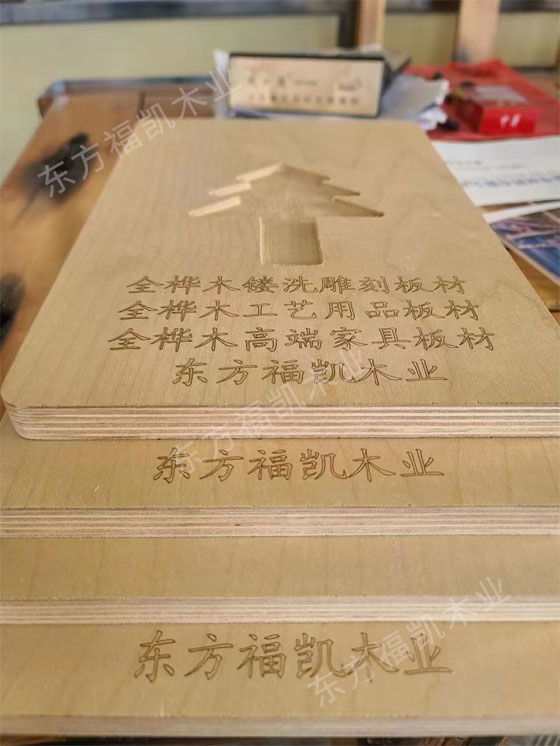 东方福凯木业
全桦木镂洗雕刻板材
全桦木工艺用品板材
全桦木高端家具板材
东方福凯木业
东方福凯木业
东方福凯木业
东方福凯木业
东方福凯木业